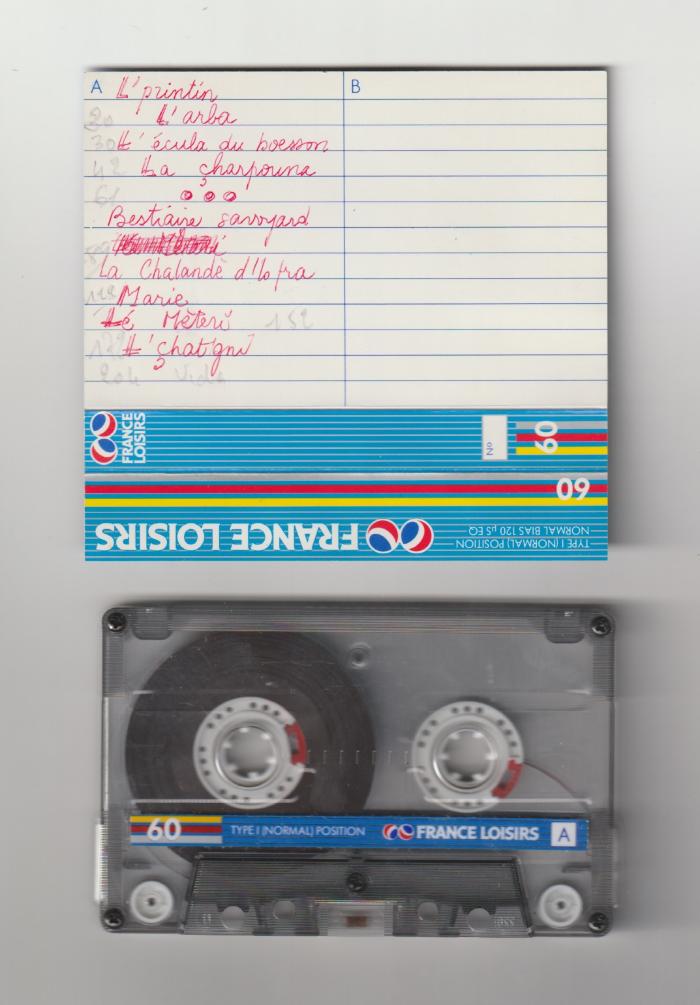 A
B
L'printin
20 L'arba
30 L'écula du boesson
42 La çharpouna
61
Bestiaire savoyard
La Chalandè d'lo fra
Marie
Lé Mèteri 152
L'çhatigni
204
FRANCE
LOISIRS
N°
60
60
FRANCE LOISIRS
TYPE I (NORMAL) POSITION
NORMAL BIAS 120 µS EQ
60 TYPE I (NORMAL) POSITION FRANCE LOISIRS A